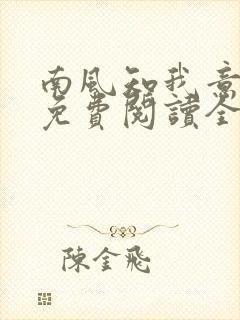 南風知我意
免費閱讀全
陳金飛